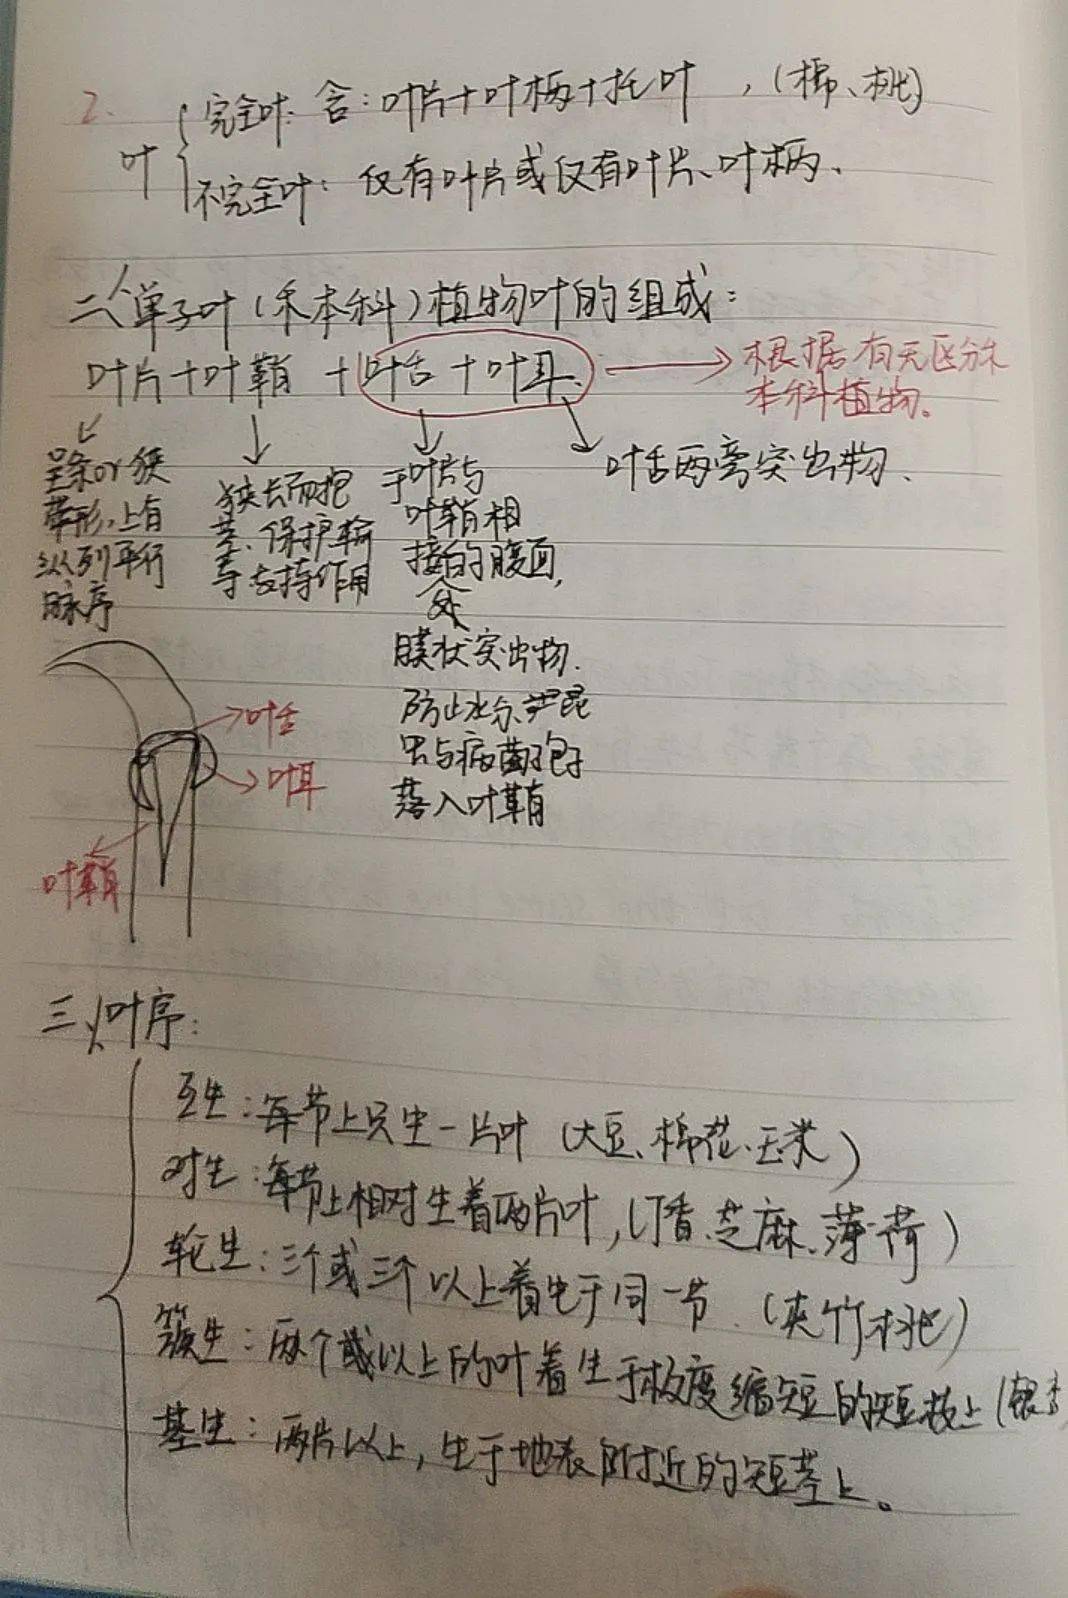 2.
叶
完全叶：含：叶片＋叶柄＋托叶，（棉、桃）
不完全叶：仅有叶片或仅有叶片、叶柄、
二、单子叶（禾本科）植物叶的组成：
叶片＋叶鞘＋叶舌＋叶耳.
根据有无区分禾
本科植物。
呈条or狭
带形，上有
纵列平行
脉序
狭长而抱
茎、保护输
导支持作用
于叶片与
叶鞘相
接的腹面，
处
膜状突出物.
防止水分、昆
虫与病菌孢子
落入叶鞘
叶舌两旁突出物.
叶舌
叶耳
叶鞘
三、叶序：
互生：每节上只生一片叶（大豆、棉花、玉米）
对生：每节上相对生着两片叶，（丁香、芝麻、薄荷）
轮生：三个或三个以上着生于同一节.（夹竹桃）
簇生：两个或以上的叶着生于极度缩短的短枝上（银杏
基生：两片以上，生于地表附近的短茎上。